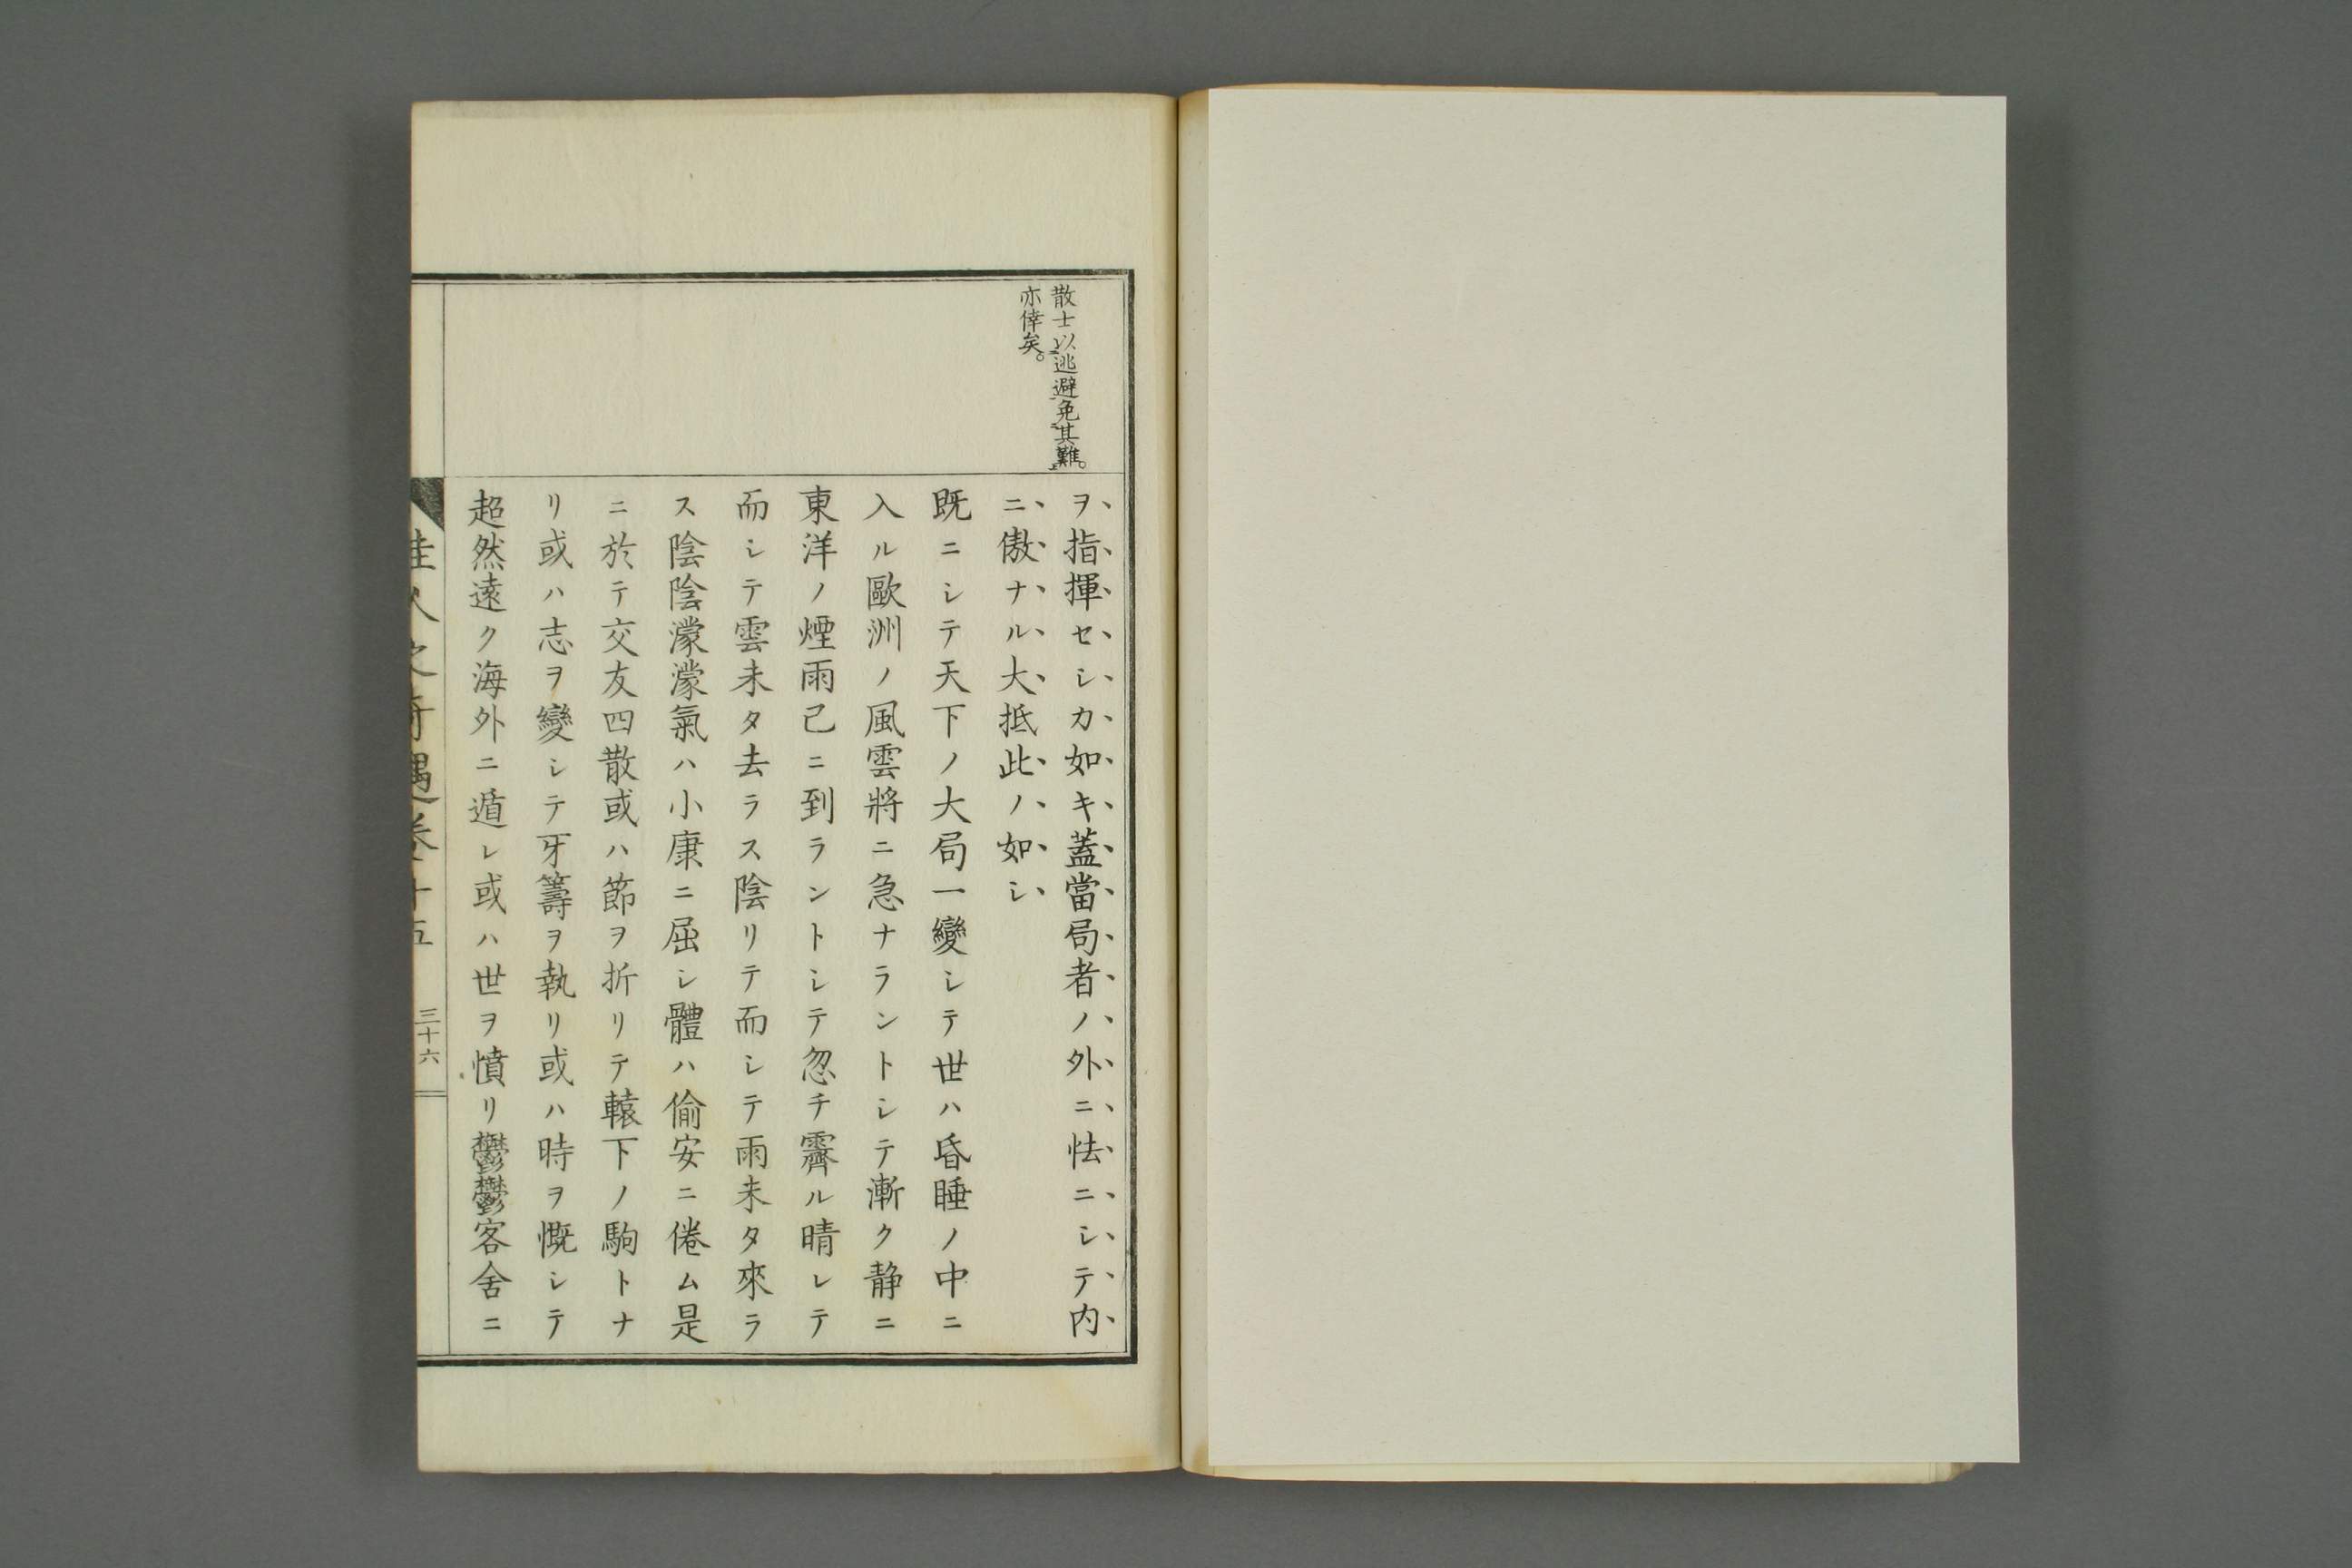 散士以逃避免其難。
亦倖矣。
ヲ指揮セシカ如キ蓋當局者ノ外ニ怯ニシテ内
ニ傲ナル大抵此ノ如シ
既ニシテ天下ノ大局一變シテ世ハ昏睡ノ中ニ
入ル歐洲ノ風雲將ニ急ナラントシテ漸ク静ニ
東洋ノ煙雨已ニ到ラントシテ忽チ霽ル晴レテ
而シテ雲未タ去ラス陰リテ而シテ雨未タ來ラ
ス陰陰濛濛氣ハ小康ニ屈シ體ハ偷安ニ倦ム是
ニ於テ交友四散或ハ節ヲ折リテ轅下ノ駒トナ
リ或ハ志ヲ變シテ牙籌ヲ執リ或ハ時ヲ慨シテ
超然遠ク海外ニ遁レ或ハ世ヲ憤リ鬱鬱客舍ニ
佳人之奇遇卷十五 三十六